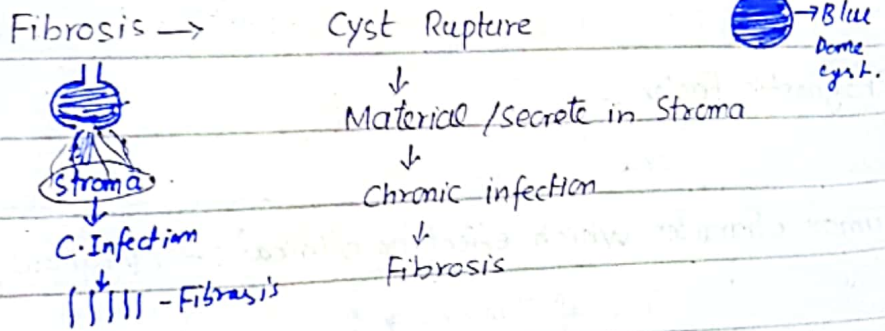 Fibrosis → Cyst Rupture
→ Blue
Dome
cyst.
↓
Material / Secrete in Stroma
↓
Chronic infection
↓
Fibrosis
Stroma
↓
C. Infection
↓
- Fibrosis